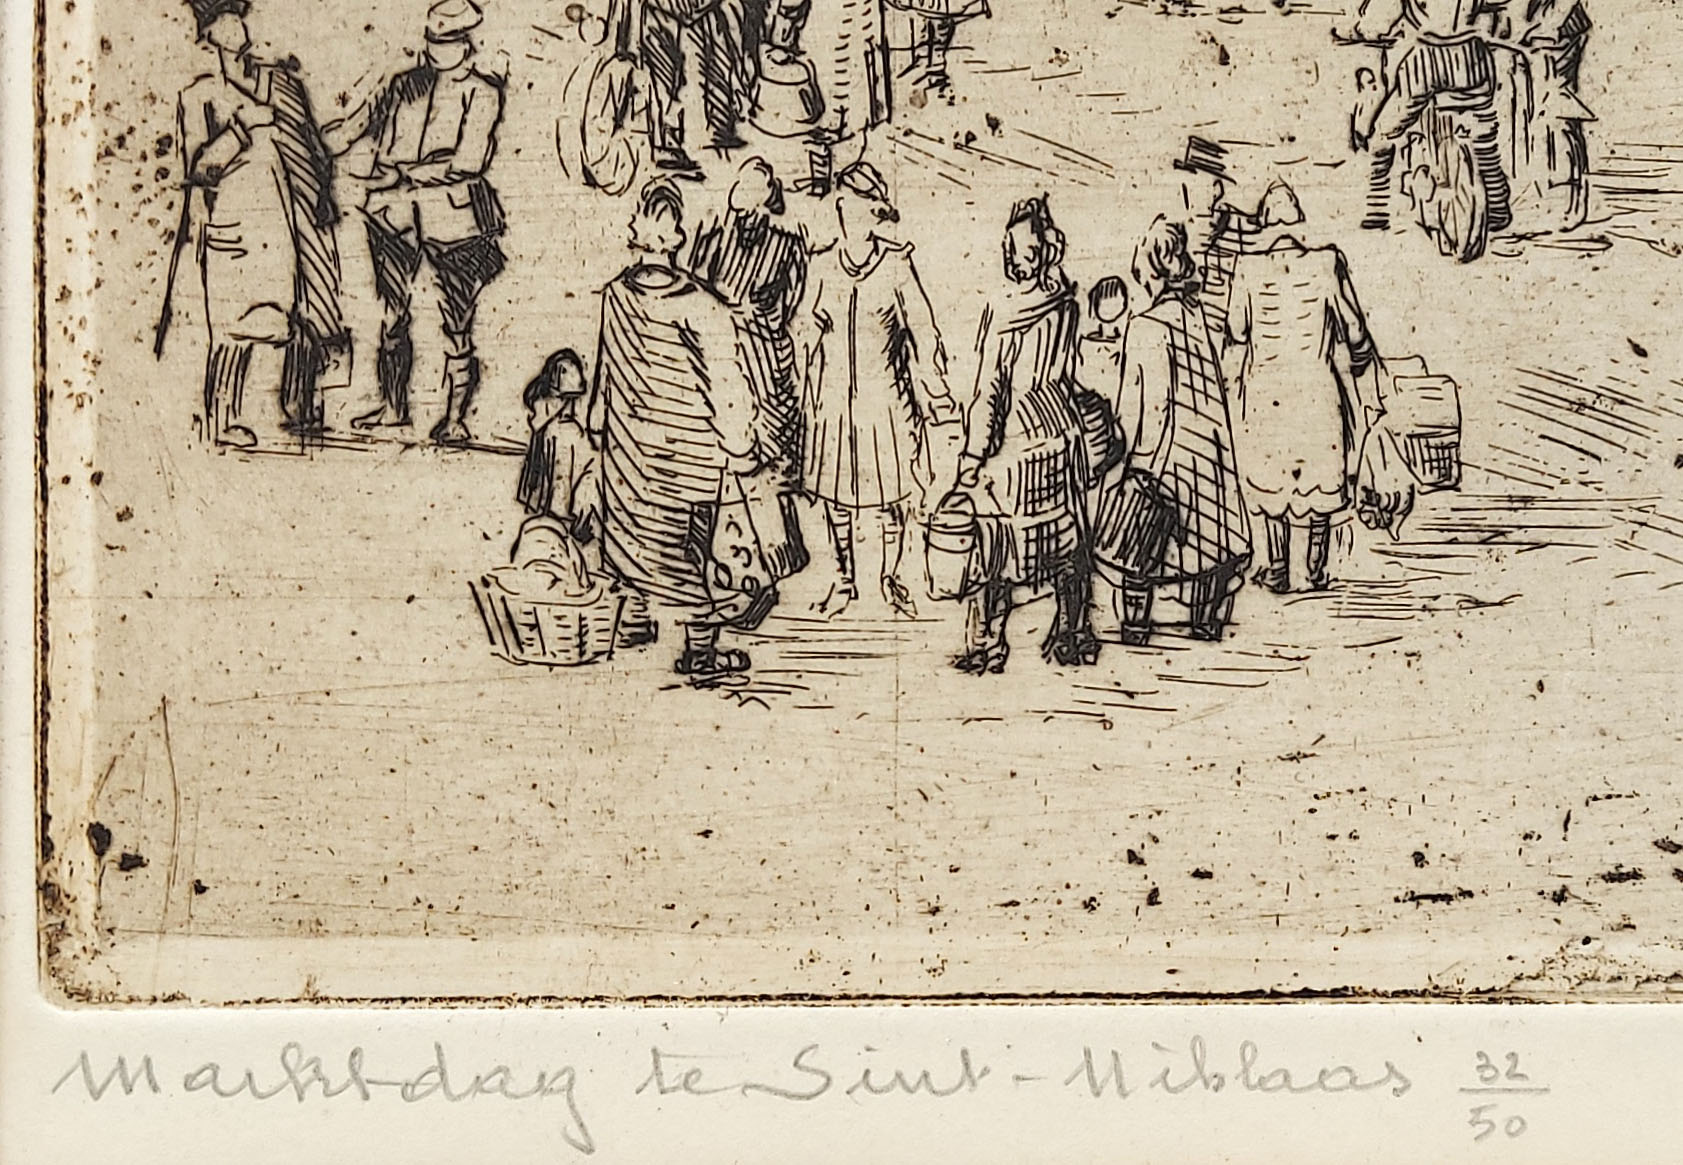 Marktdag te Sint-Niklaas 32/50